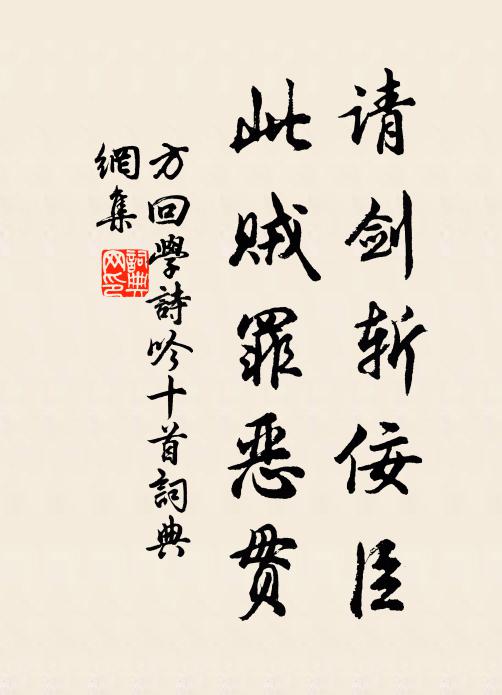 请剑斩佞臣
此贼罪恶贯
方回学詩吟十首詞典
網集
詞典网印